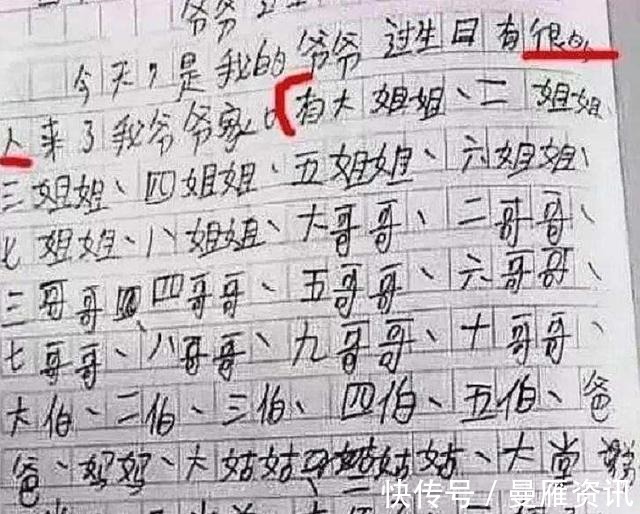 爷爷
今天,是我的爷爷过生日有很的
人来了我爷爷家有大姐姐、二姐姐、
三姐姐、四姐姐、五姐姐、六姐姐、
七姐姐、八姐姐、大哥哥、二哥哥、
三哥哥四哥哥、五哥哥、六哥哥、
七哥哥、八哥哥、九哥哥、十哥哥、
大伯、二伯、三伯、四伯、五伯、爸
爸、妈妈、大姑姑姑姑、大
快传号/曼雁资讯